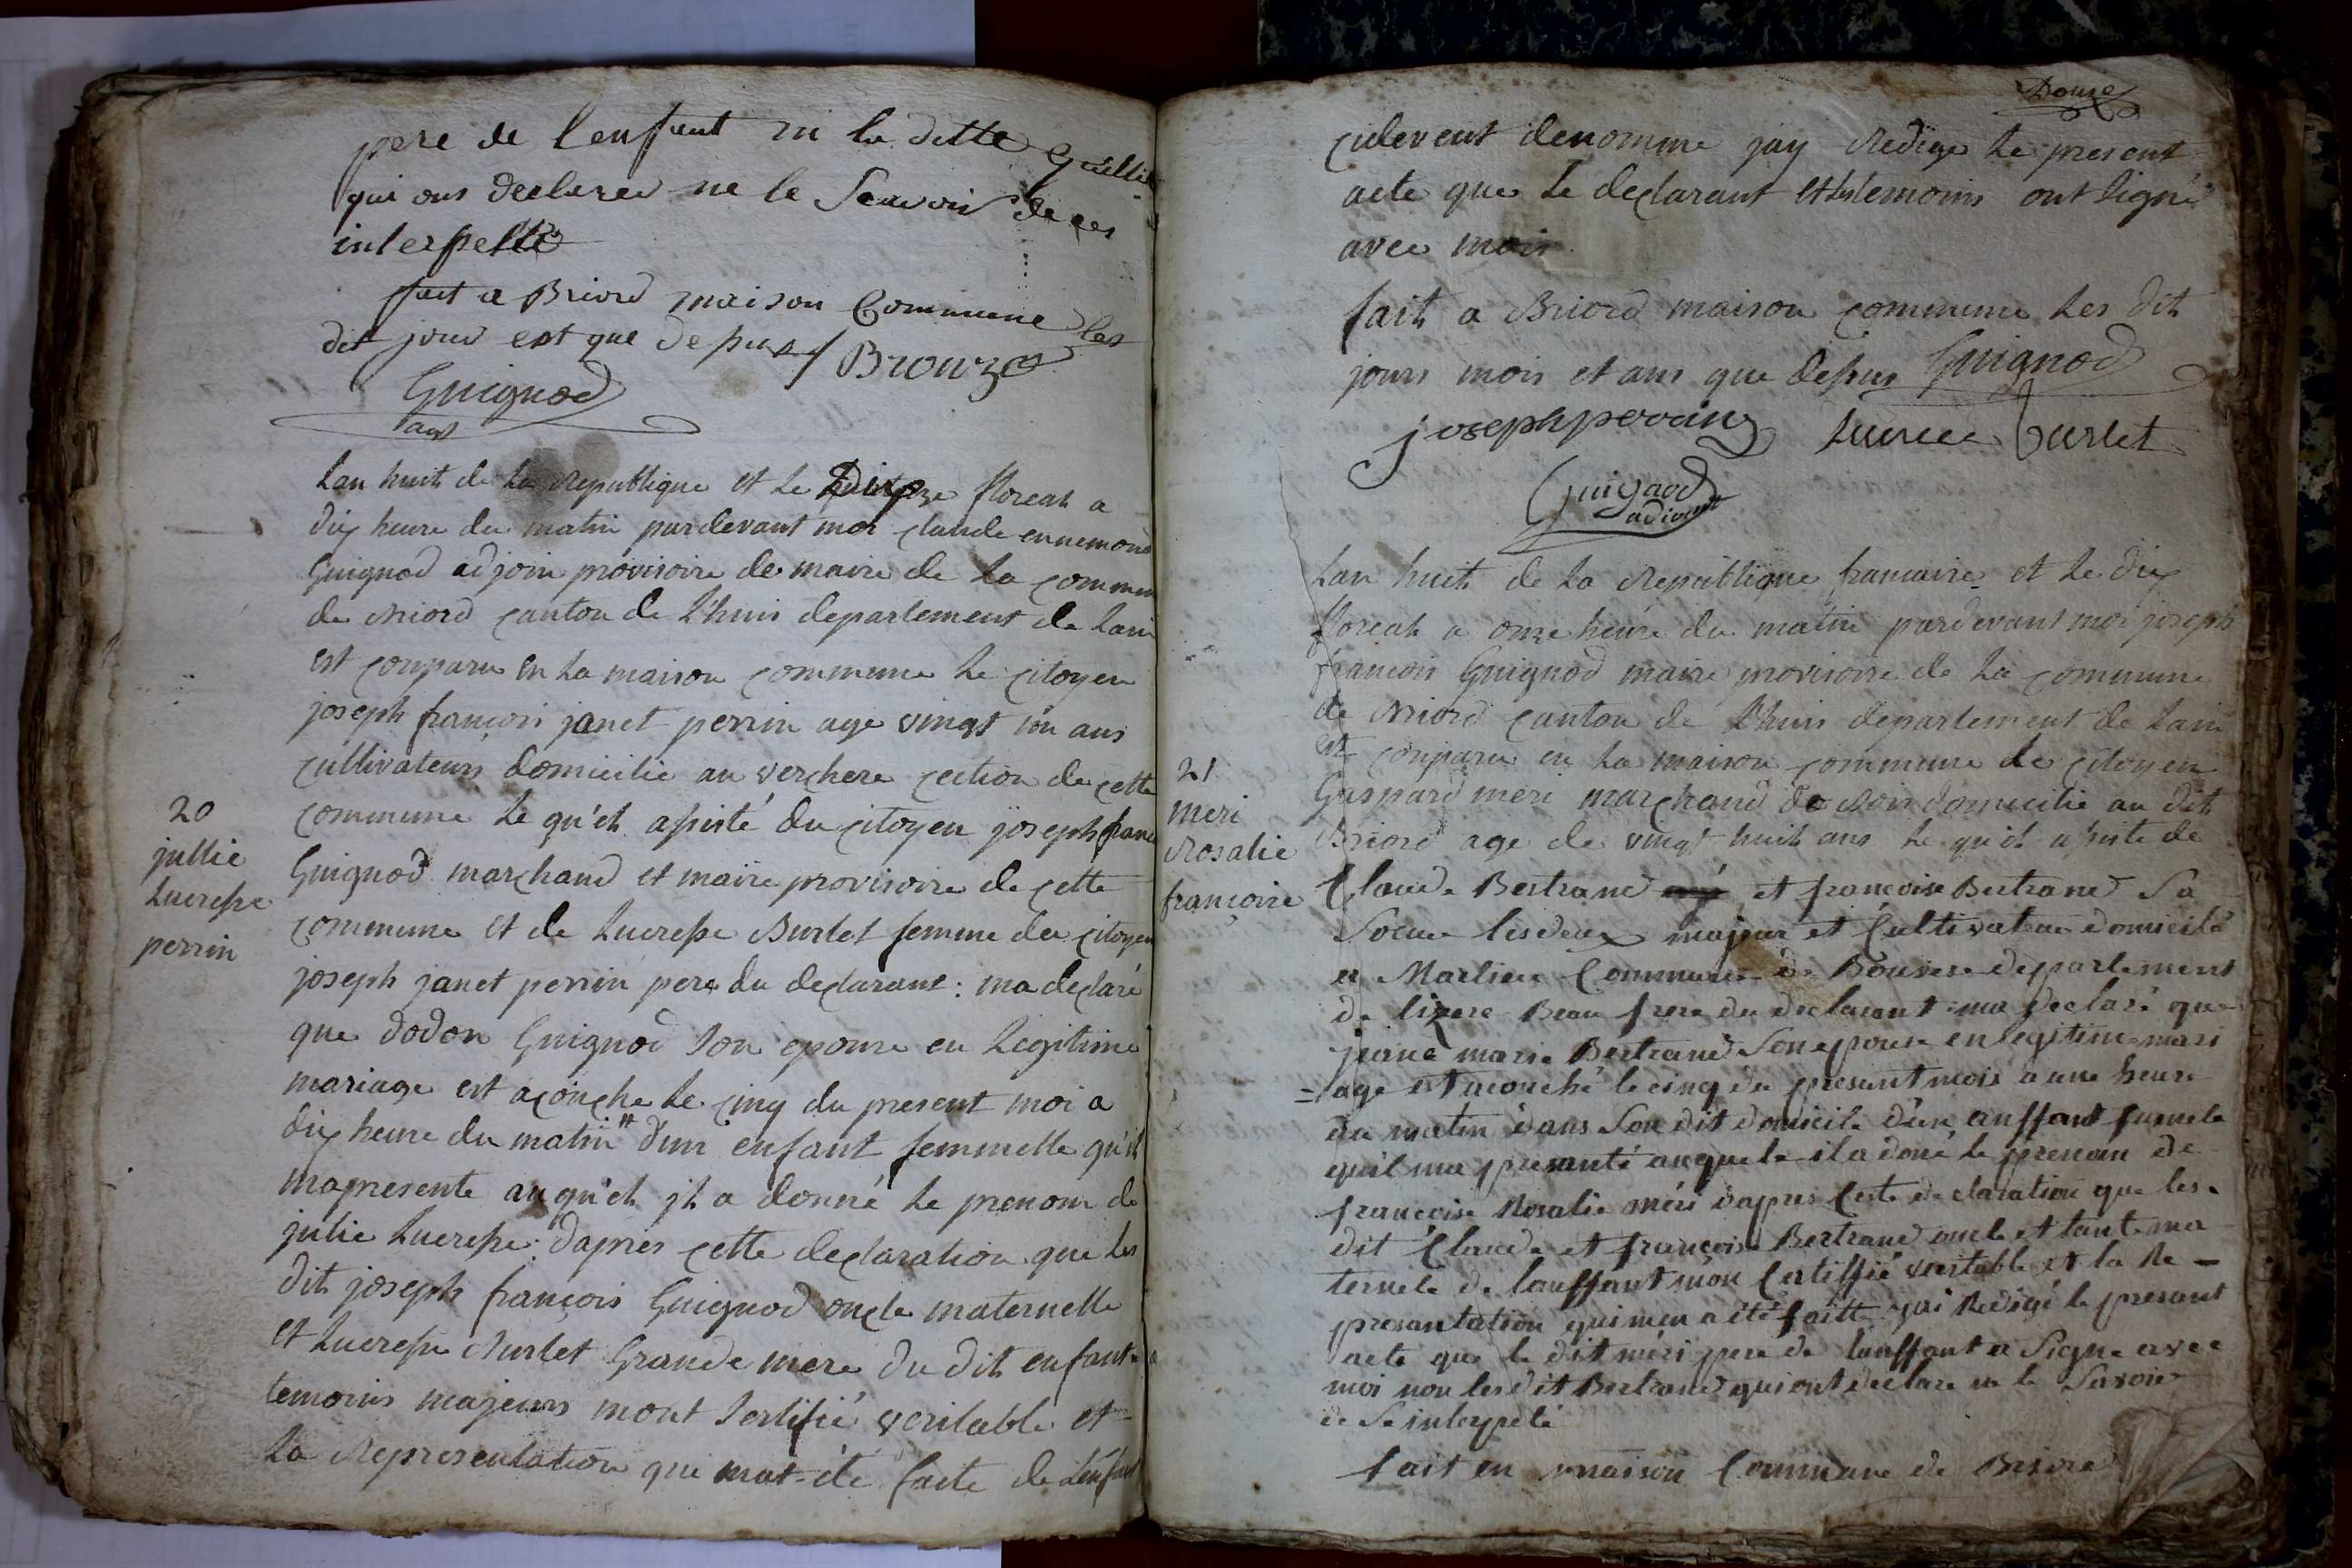 pere de l'enfant ni la ditte
qui ons declaree ne le Scavoir de ces
interpellé
fait a Briord maison Commune les
dit jour est que depus / Brouze
Guignod
agt
Lan huit de la Republique et le floreah a
dix heure du matin pardevant moi claude ennemond
Guignod adjoin provisoire de maire de la commun
de Briord canton de L'huis departement de Lain
est conparu en La maison commune Le citoyen
joseph françois janet perrin age vingt un ans
cultivateurs domicilié au verchere cection de cette
commune Le qu'eh assisté du citoyen joseph franc
20
jullie
Lucresse
perrin
Guignod marchand et maire provisoire de cette
commune et de Lucresse Burlet femme du citoyen
joseph janet perrin pere du declarant : ma declaré
que dodon Guignod Son epouse en Legitime
mariage est açouche Le cinq du present moi a
dix heure du matin d'un enfant femmelle qu'il
mapresente au qu'eh jh a donné Le prenom de
julie Lucresse : d'apres cette declaration que les
dit joseph françois Guignod oncle maternelle
et Lucresse Burlet Grande mere du dit enfant
temoins majeurs mont Sertifié veritable et
La Representation qui mat été faite de L'enfant
Douze
cidevent denomme jay Redige Le present
acte que Le declarant et les temoins ont Signé
avec moi
fait a Briord maison commune Les dit
jours mois et ans que dessus Guignod
joseph perrin Lucrece Burlet
Guignod
adioint
Lan huit de La Republique francaise et Le dix
floreah a onze heure du matin pardevant moi joseph
francois Guignod maire provisoire de La commune
de Briord canton de L'huis departement de Lain
est conparu en La maison commune Le citoyen
21
meri
Rosalie
françoise
Gaspard meri marchand de domicilié au dit
Briord age de vingt huit ans Le qu'eh assiste de
Claude Bertrand et françoise Bertrand Sa
Soeur lesdeux majeur et Cultivateur domicilé
a Marlieu Commune de Bouvese departement
de lizere Beau frere du declarant : ma declaré que
jeane marie Bertrand Son epouse en legitime mari
=age est acouché le cinq du presant mois a une heure
du matin dans Son dit domicile d'un anffant fumele
qu'il ma presanté auquele il a doné le prenom de
françoise Rosalie méri dapres Cete declaration que les
dit Claude et françoise Bertrand oncle et tante ma
ternele de lanffant mon Certiffié veritable et la Re -
presantation qui men a été faitte jai Redigé le presant
acte que le dit méri pere de lanffant a Signe avec
moi non les dit Bertrand qui ont declare ne le Savoir
de Se interpelé
fait en maison Commune de Briord